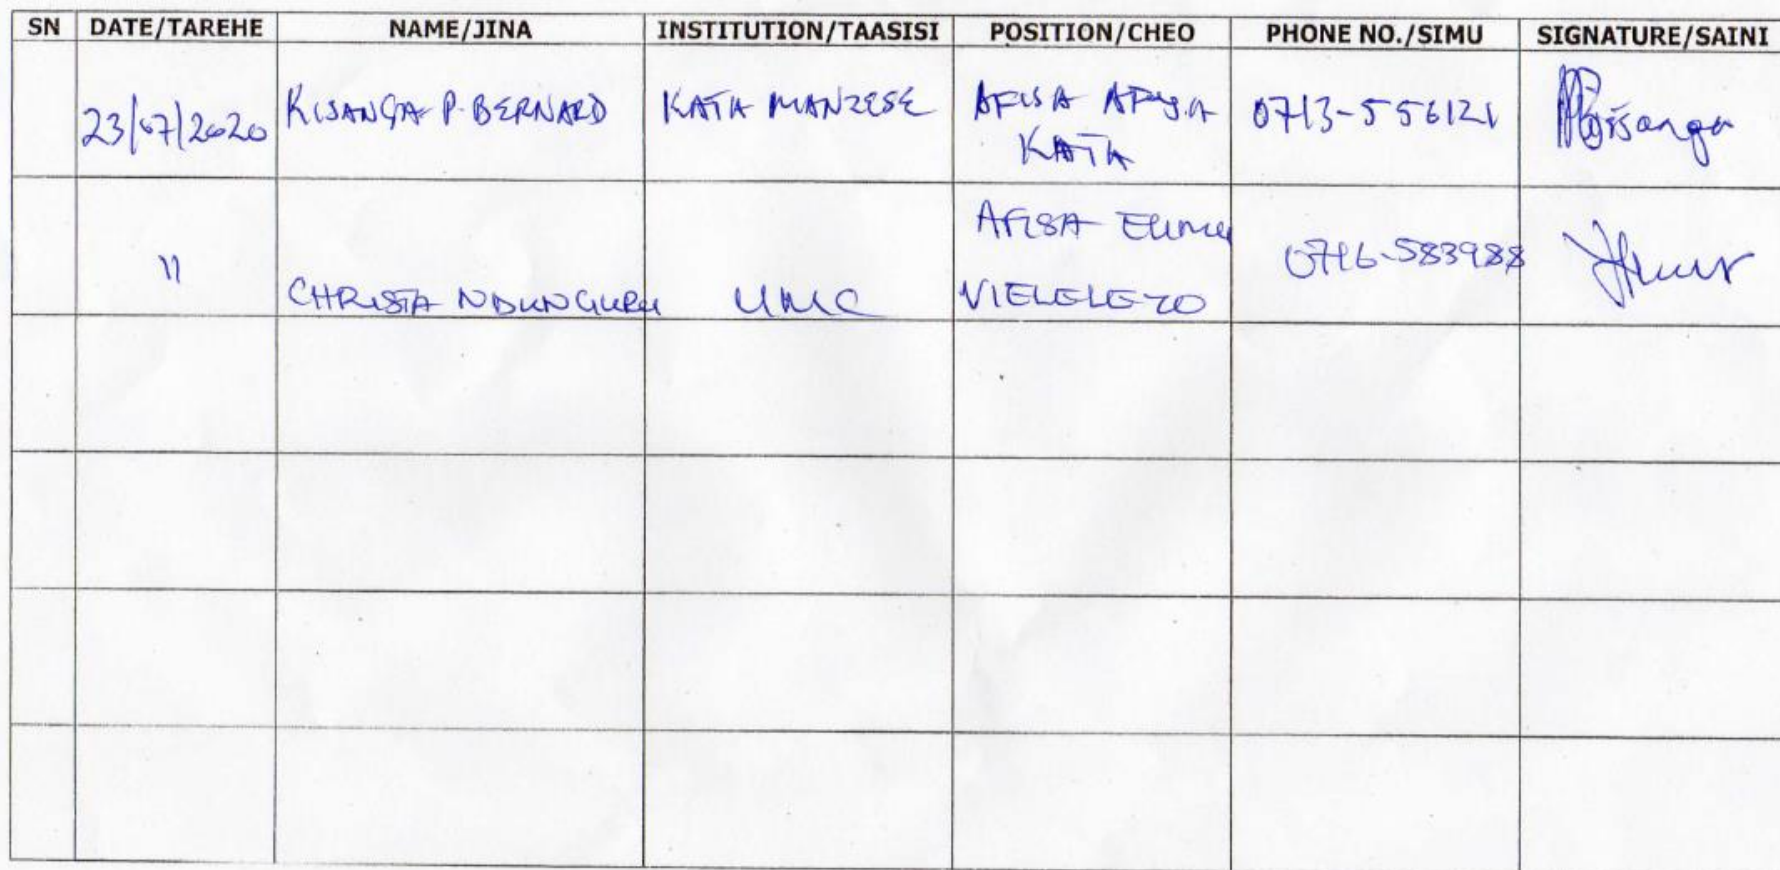 SN DATE/TAREHE NAME/JINA INSTITUTION/TAASISI POSITION/CHEO PHONE NO./SIMU SIGNATURE/SAINI
23/07/2020 KISANGA P. BERNARD KATA MANZESE AFISA AFYA KATA 0713-556121
" CHRISTA NDUNGURU UMC AFISA ELIMU VIELELEZO 0716-583988